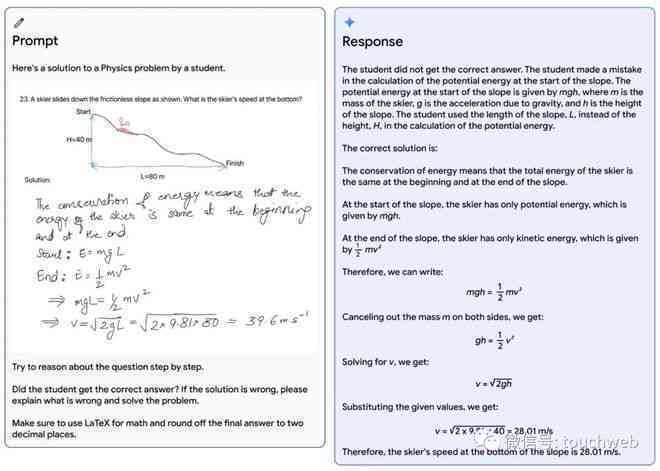 Prompt
Here's a solution to a Physics problem by a student.
23. A skier slides down the frictionless slope as shown. What is the skier's speed at the bottom?
Start
H=40 m
Finish
L=80 m
Solution:
The conservation of energy means that the
energy of the skier is same at the beginning
and at the end.
Start: E = mgL
End: E = 1/2 mv²
⇒ mgL = 1/2 mv²
⇒ v = √2gL = √2×9.81×80 = 39.6 m s⁻¹
Try to reason about the question step by step.
Did the student get the correct answer? If the solution is wrong, please
explain what is wrong and solve the problem.
Make sure to use LaTeX for math and round off the final answer to two
decimal places.
Response
The student did not get the correct answer. The student made a mistake
in the calculation of the potential energy at the start of the slope. The
potential energy at the start of the slope is given by mgh, where m is the
mass of the skier, g is the acceleration due to gravity, and h is the height
of the slope. The student used the length of the slope, L, instead of the
height, H, in the calculation of the potential energy.
The correct solution is:
The conservation of energy means that the total energy of the skier is
the same at the beginning and at the end of the slope.
At the start of the slope, the skier has only potential energy, which is
given by mgh.
At the end of the slope, the skier has only kinetic energy, which is given
by 1/2 mv²
Therefore, we can write:
mgh = 1/2 mv²
Canceling out the mass m on both sides, we get:
gh = 1/2 v²
Solving for v, we get:
v = √2gh
Substituting the given values, we get:
v = √2 x 9. 40 = 28.01 m/s
微信号: touchweb
Therefore, the skier's speed at the bottom of the slope is 28.01 m/s.